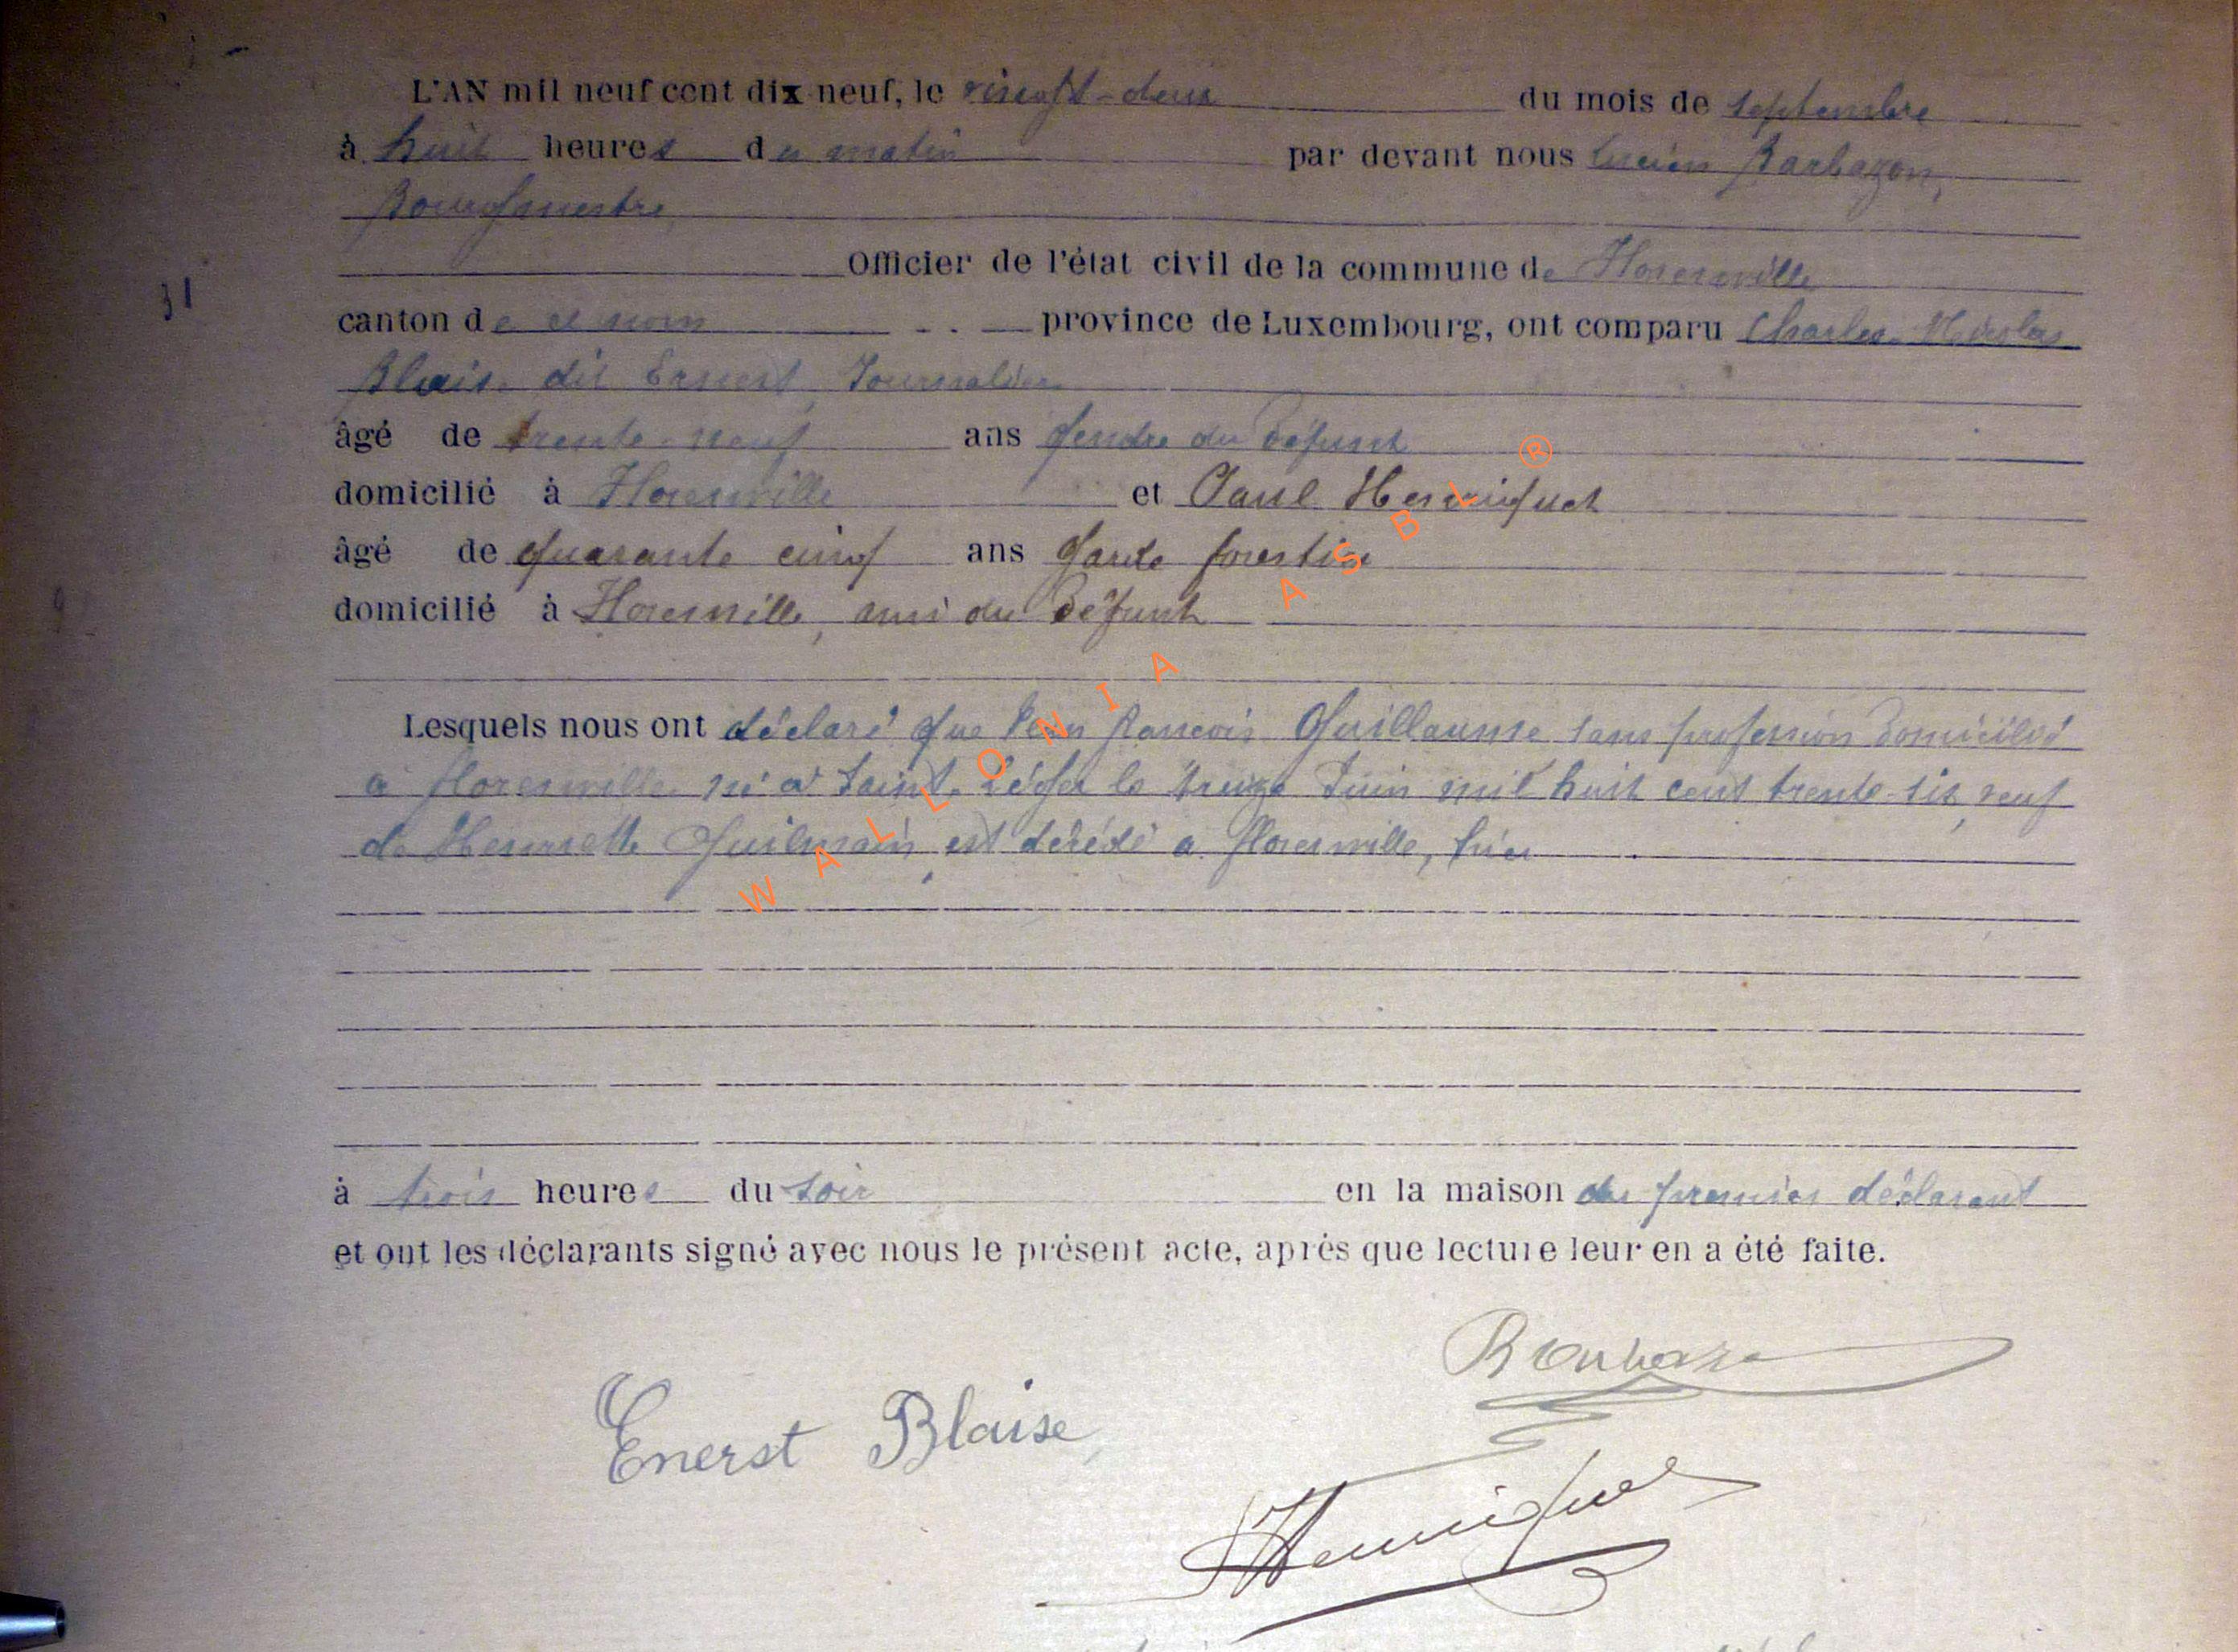 L'AN mil neuf cent dix-neuf, le vingt-deux du mois de septembre
à huit heures du matin par devant nous Lucien Barbazon,
Bourgmestre
Officier de l'état civil de la commune de Florenville
31
canton de ce nom province de Luxembourg, ont comparu Charles Nicolas
Blaise dit Ernest, Journalier
âgé de trente-neuf ans gendre du défunt
domicilié à Florenville et Paul Henriquet
âgé de quarante cinq ans garde forestier
domicilié à Florenville, ami du défunt
Lesquels nous ont déclaré que Jean François Guillaume sans profession domicilié
à florenville né à Saint-Léger le treize Juin mil huit cent trente-six, veuf
de Henriette Guilmain, est décédé à florenville, hier
à trois heures du soir en la maison du premier déclarant
et ont les déclarants signé avec nous le présent acte, après que lecture leur en a été faite.
Barbazon
Enerst Blaise
Henriquet
WALLONIA ASBL ®